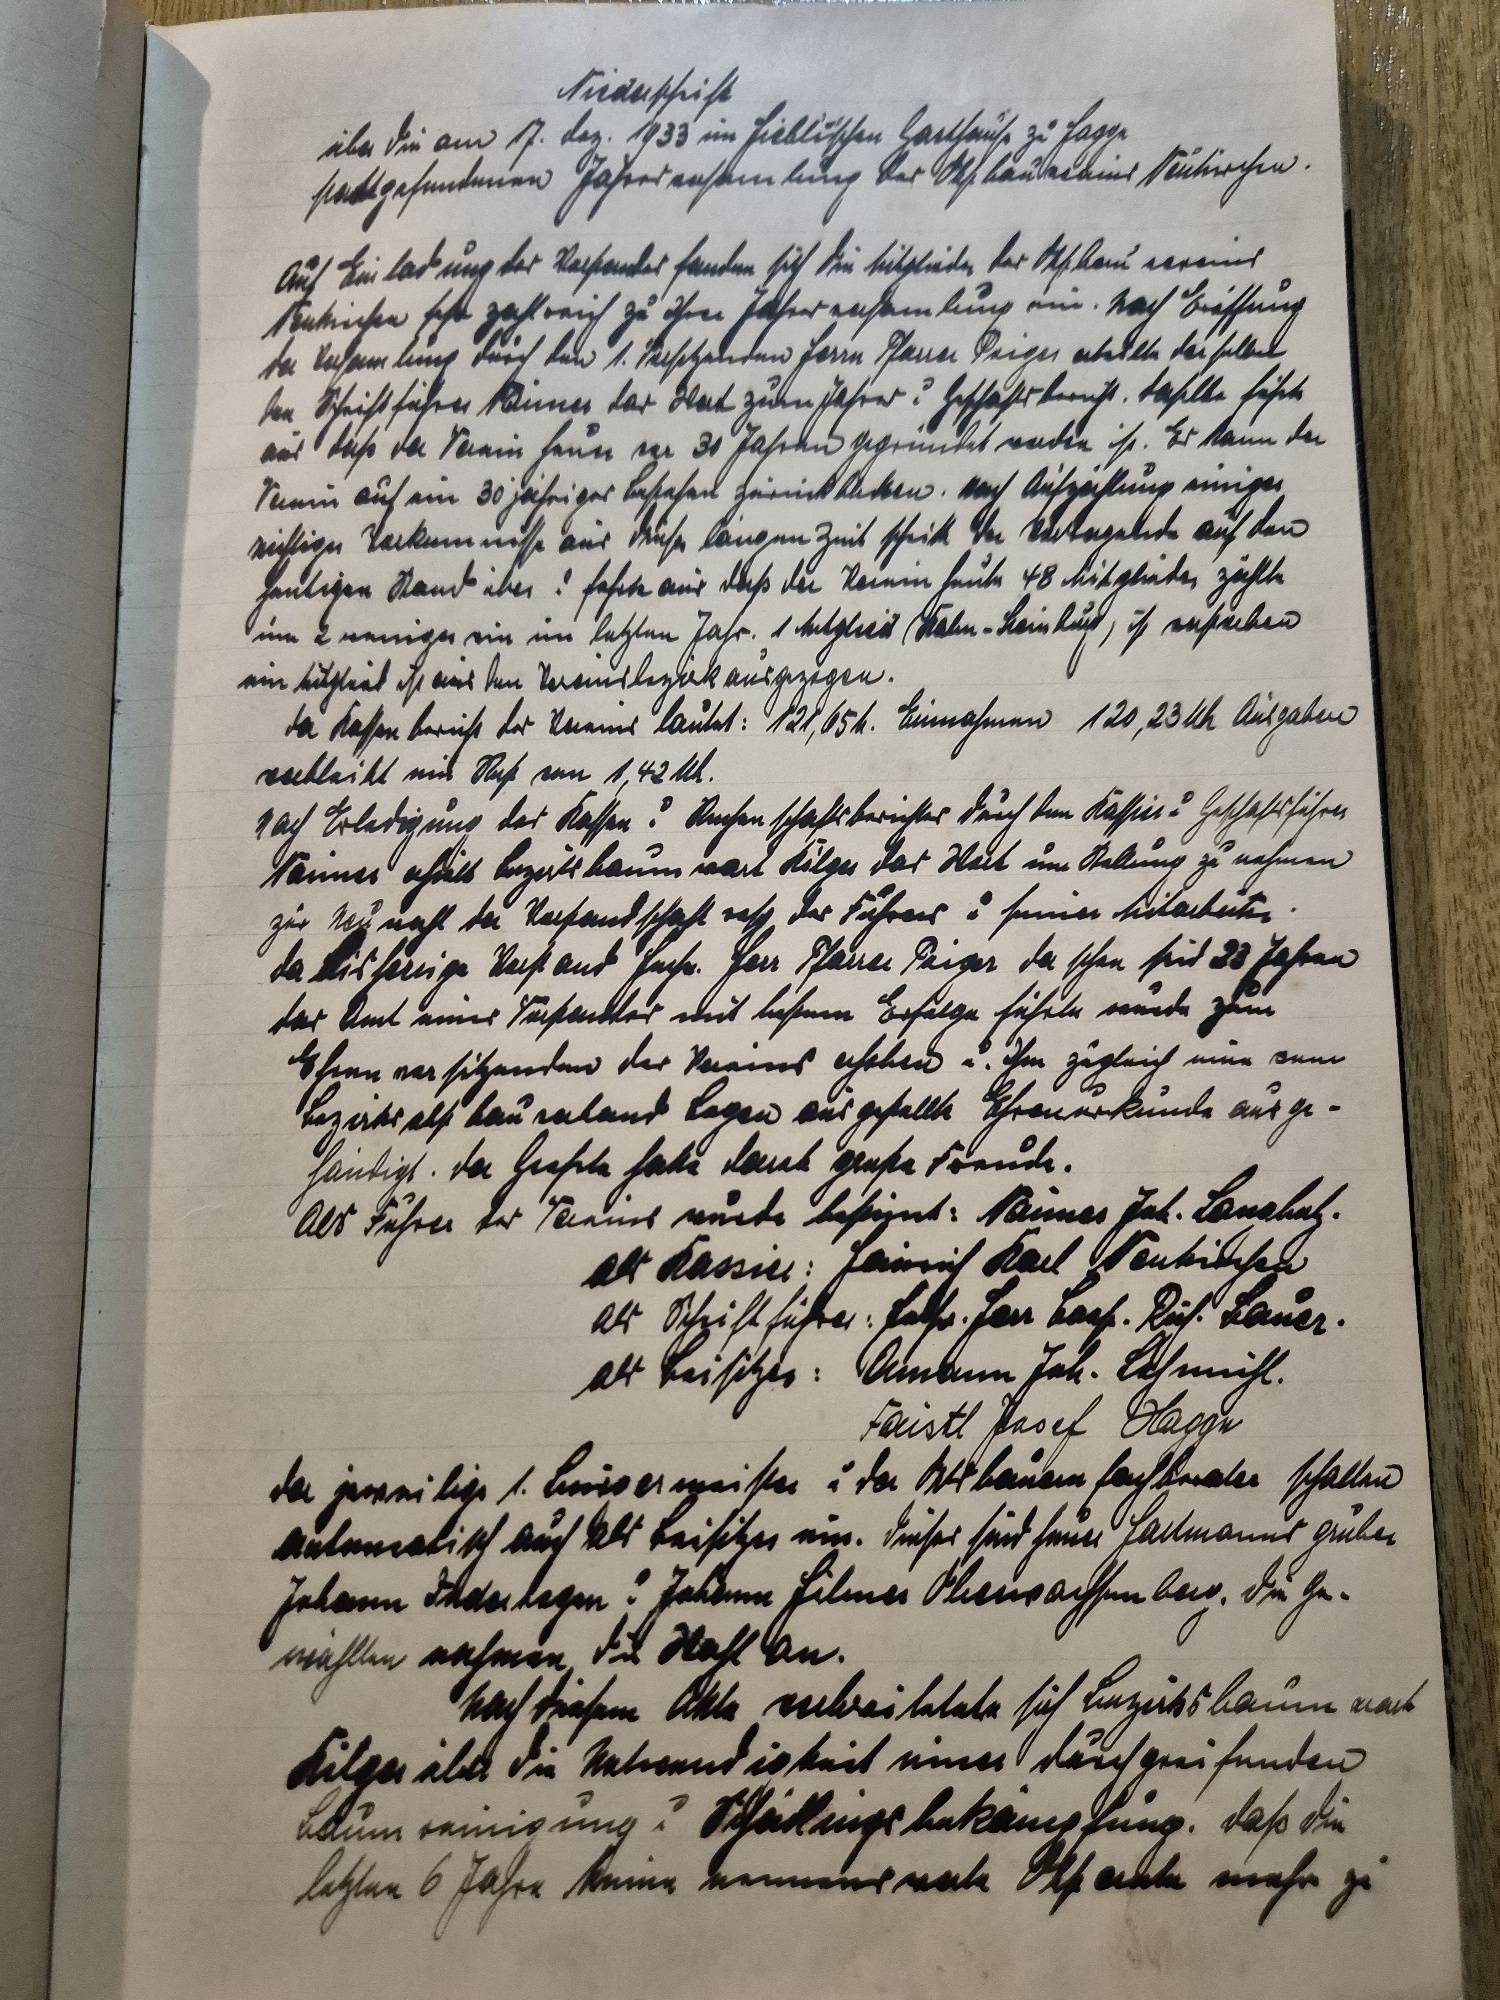 Niederschrift
über die am 17. Dez. 1933 im Fieblischen Gasthause zu Hagge
stattgefundenen Jahresversamlung des Obstbauvereins Neukirchen.
Auf Einladung des Vorstandes fanden sich die Mitglieder des Obstbauvereins
Neukirchen sehr zahlreich zu ihrer Jahresversamlung ein. Nach Eröffnung
der Versamlung durch den 1. Vorsitzenden Herrn Pfarrer Peiger erteilte derselbe
den Schriftführer Naimer das Wort zum Jahres u Geschäftsbericht. Daselbe führte
aus daß der Verein heuer vor 30 Jahren gegründet worden ist. Er kann der
Verein auf ein 30 jähriges bestehen zurückblicken. Nach Aufzählung einiger
wichtiger Vorkommnisse aus dieser langen Zeit schritt der Vortragende auf den
heutigen Stand über u führte aus daß der Verein heute 48 Mitglieder zählte
um 2 weniger wie im letzten Jahr. 1 Mitglied (Steinburg) ist verstorben
ein Mitglied ist aus dem Vereinsbezirk ausgezogen.
Der Kassenbericht des Vereins lautet: 121,65 M. Einnahmen 120,23 Mk Ausgaben
verbleibt ein Rest von 1,42 Mk.
Nach Erledigung des Kassen u Rechenschaftsberichtes durch den Kassier u Geschäftsführer
Naimer erhielt Bezirksbaumwart Kilger das Wort um Stellung zu nehmen
zur Neuwahl der Vorstandschaft resp. des Führers u seiner Mitarbeiter.
Der bisherige Vorstand Hochw. Herr Pfarrer Peiger der schon seid 23 Jahren
das Amt eines Vorstandes mit bestem Erfolge führte wurde zum
Ehrenvorsitzenden des Vereins erhoben u. ihm zugleich eine vom
Bezirksobstbauverband Bogen ausgestellte Ehrenurkunde ausge-
händigt. Der Geehrte hatte darob große Freude.
Als Führer des Vereins wurde bestimt: Naimer Joh. Landholz.
als Kassier: Heinrich Karl Neukirchen
als Schriftführer: Hochw. Herr Bauer.
als Beisitzer: Amann Joh. Lohmühl.
Faistl Josef Hagge
der jeweilige 1. Bürgermeister u der Ortsbauern fachberater schalten
automatisch auch als Beisitzer ein. Dieses sind heuer Hartmannsgruber
Johann Inderbogen u Johann Hilmer Oberwachsenberg. Die Ge-
wählten nahmen die Wahl an.
Nach diesem Akte verbreitete sich Bezirksbaumwart
Kilger über die Notwendigkeit einer durchgreifenden
Baumreinigung u Schädlingsbekämpfung. daß die
letzten 6 Jahre keine nennenswerte Obsternte mehr zu